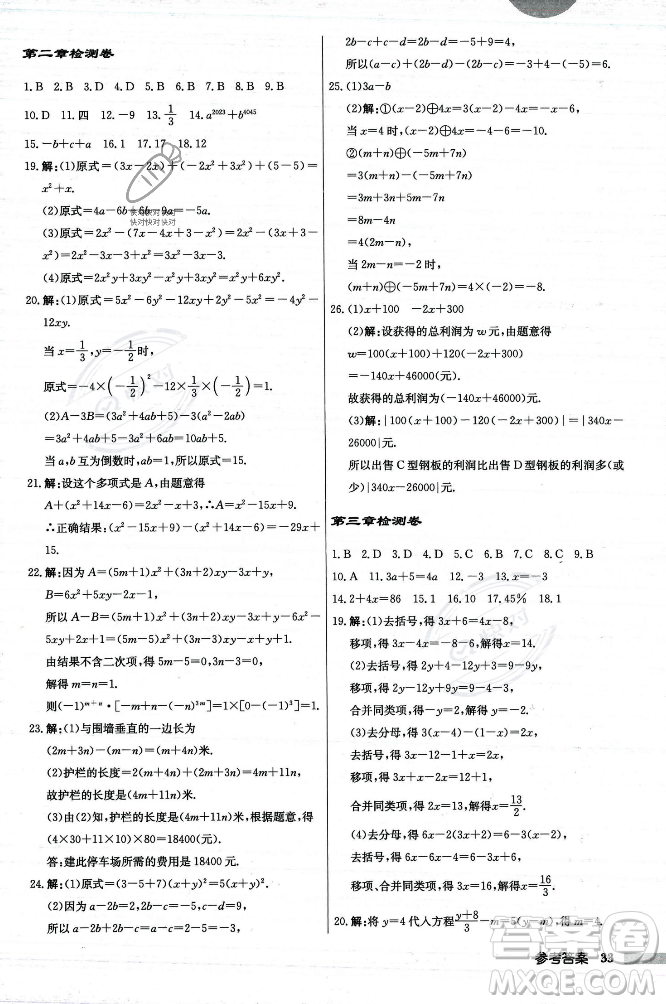 第二章检测卷
1.B 2.B 3.D 4.B 5.D 6.D 7.B 8.C 9.B
10.D 11.四 12.-9 13.1/3 14.a^2023+b^4045
15.-b+c+a 16.1 17.17 18.12
19.解:(1)原式=(3x-2x)+(-2x²+3x²)+(5-5)=
x²+x.
(2)原式=4a-6b+6b-9a=-5a.
快对快对快对
快对快对快对
(3)原式=2x²-(7x-4x+3-2x²)=2x²-7x+
4x-3+2x²=4x²-3x-3.
(4)原式=2x²y+2xy²-2x²y+6xy²=8xy².
20.解:(1)原式=5x²-6x²-12xy-3x²=-4x²-
12xy.
当x=1/3,y=-1/2时,
原式=-4×(-1/2)²-12×1/3×(-1/2)=1.
(2)A-3B=(3a²+4ab)-3(a²-2ab)
=3a²+4ab-3a²+6ab=10ab.
当a,b互为倒数时,ab=1,原式=10.
21.解:设这个多项式是A,由题意得
A+(x²+14x-6)=2x²-x+3,∴A=x²-15x+9.
∴正确结果:(x²-15x+9)-(x²+14x-6)=-29x+
15.
22.解:因为A=(5m+1)x²+(3n+2)xy-3x+y,
B=6x²-5mxy-2x-1,
所以A-B=(5m+1)x²+(3n+2)xy-3x+y-6x²+
5xy+2x+1=(5m-5)x²+(3n+2+5m)xy-x+y+1.
由结果不含二次项,得5m-5=0,3n+2+5m=0,
解得m=n=1.
则(-1)^(m+n)·[-m+n-(-n)^(2m)]=1×[0-(-1)²]=1.
23.解:(1)与围墙垂直的一边长为
(2m+3n)-(m-n)=(m+4n)米.
(2)护栏的长度=2(m+4n)+(2m+3n)=(4m+11n)米.
故护栏的长度为(4m+11n)米.
(3)由(2)知,护栏的长度是4m+11n,根据题意,得
(4×30+11×10)×80=18400(元).
答:建此停车场所需的费用是18400元.
24.解:(1)原式=(3-5+7)(x+y)²=5(x+y)².
(2)a-2b=2,2b-c=-5,c-d=9,所以a-2b+
2b-c+c-d=a-d=2-5+9=6,
2b-c+c-d=2b-d=-5+9=4.
所以(a-c)+(2b-d)-(2b-c)=-3+4-(-5)=6.
25.(1)3a-b
(2)解:①(x-2)⊕4x=3(x-2)-4x=-x-6,
当x=4时,(x-2)⊕4x=-4-6=-10.
②(m+n)⊕(-5m+7n)
=3(m+n)-(-5m+7n)
=3m+3n+5m-7n
=8m-4n
=4(2m-n).
当2m-n=-2时,
(m+n)⊕(-5m+7n)=4×(-2)=-8.
26.(1)x+100 -2x+300
(2)解:设获得的总利润为w元,由题意得
w=100(x+100)+120(-2x+300)
=(-140x+46000)(元).
故获得的总利润为(-140x+46000)元.
(3)解:|100(x+100)-120(-2x+300)|=|340x-
26000|(元).
所以出售C型钢板的利润比出售D型钢板的利润多(或
少)|340x-26000|元.
第三章检测卷
1.B 2.D 3.D 4.A 5.B 6.D 7.C 8.C 9.B
10.A 11.3a+5=4a 12.3 13.x=-3
14.2+4x=86 15.1 16.10 17.45% 18.1
19.解:(1)去括号,得3x+8=4x-6,
移项,得3x-4x=-8-6,解得x=14.
(2)去括号,得2y+4-12y+3=9-9y,
移项,得2y-12y+9y=9-4-3,
合并同类项,得-y=2,解得y=-2.
(3)去分母,得3(x-4)-(-x-1)=2x+2,
去括号,得3x-12+x+1=2x+2,
移项,得3x+x-2x=2+12-1,
合并同类项,得2x=13,解得x=13/2.
(4)去分母,得6x-2(3x-2)=6-3(x-4),
去括号,得6x-6x+4=6-3x+12,
移项,得6x-6x+3x=6+12-4
移项、合并同类项,得3x=16,解得x=16/3.
20.解:将y=4代入方程(y+8)/3-m=5(y-m),得m=4.
参考答案 33
答案圈
MXQE.COM